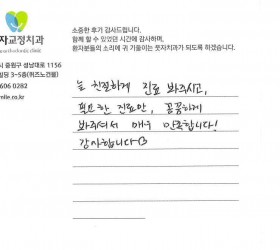 소중한 후기 감사드립니다.
함께 할 수 있었던 시간에 감사하며,
환자분들의 소리에 귀 기울이는 웃자치과가 되도록 하겠습니다.
자교정치과
orthodontic clinic
시 중원구 성남대로 1156
빌딩 3~5층(위즈노건물)
606 0282
mile.co.kr
늘 친절하게 진료 봐주시고,
필요한 진료만, 꼼꼼하게
봐주셔서 매우 만족합니다!
감사합니다♡